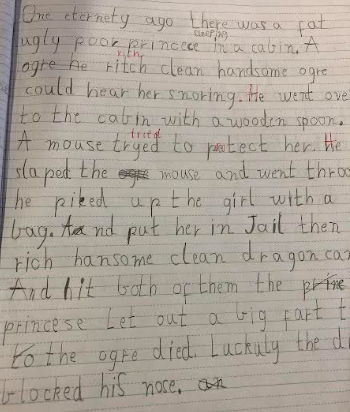 One eternety ago there was a fat
ugly poor princece sleeping in a cabin. A
ogre he with ritch clean handsome ogre
could hear her snoring. He went ove
to the cabin with a wooden spoon.
A mouse tryed tried to protect her. He
slaped the mouse and went throo
he piked up the girl with a
bag. And put her in Jail then
rich hansome clean dragon cam
And hit both of them the prine
princese Let out a big fart t
to the ogre died. Luckuly the d
blocked his nose.